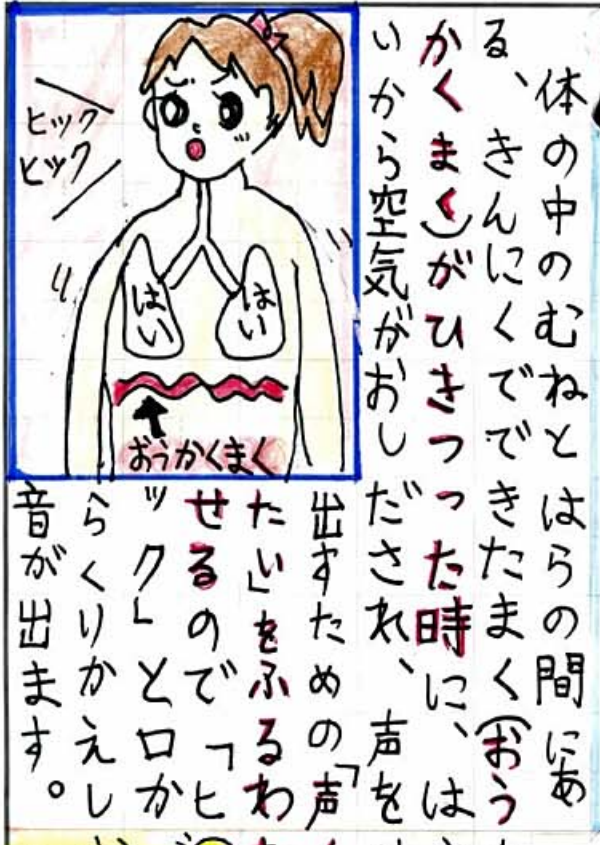 体の中のむねとはらの間にあ
る、きんにくでできたまく(おう
かくまく)がひきつった時に、は
いから空気がおしだされ、声を
出すための「声
たい」をふるわ
せるので「ヒ
ック」と口か
らくりかえし
音が出ます。
ヒック
ヒック
はい
はい
おうかくまく